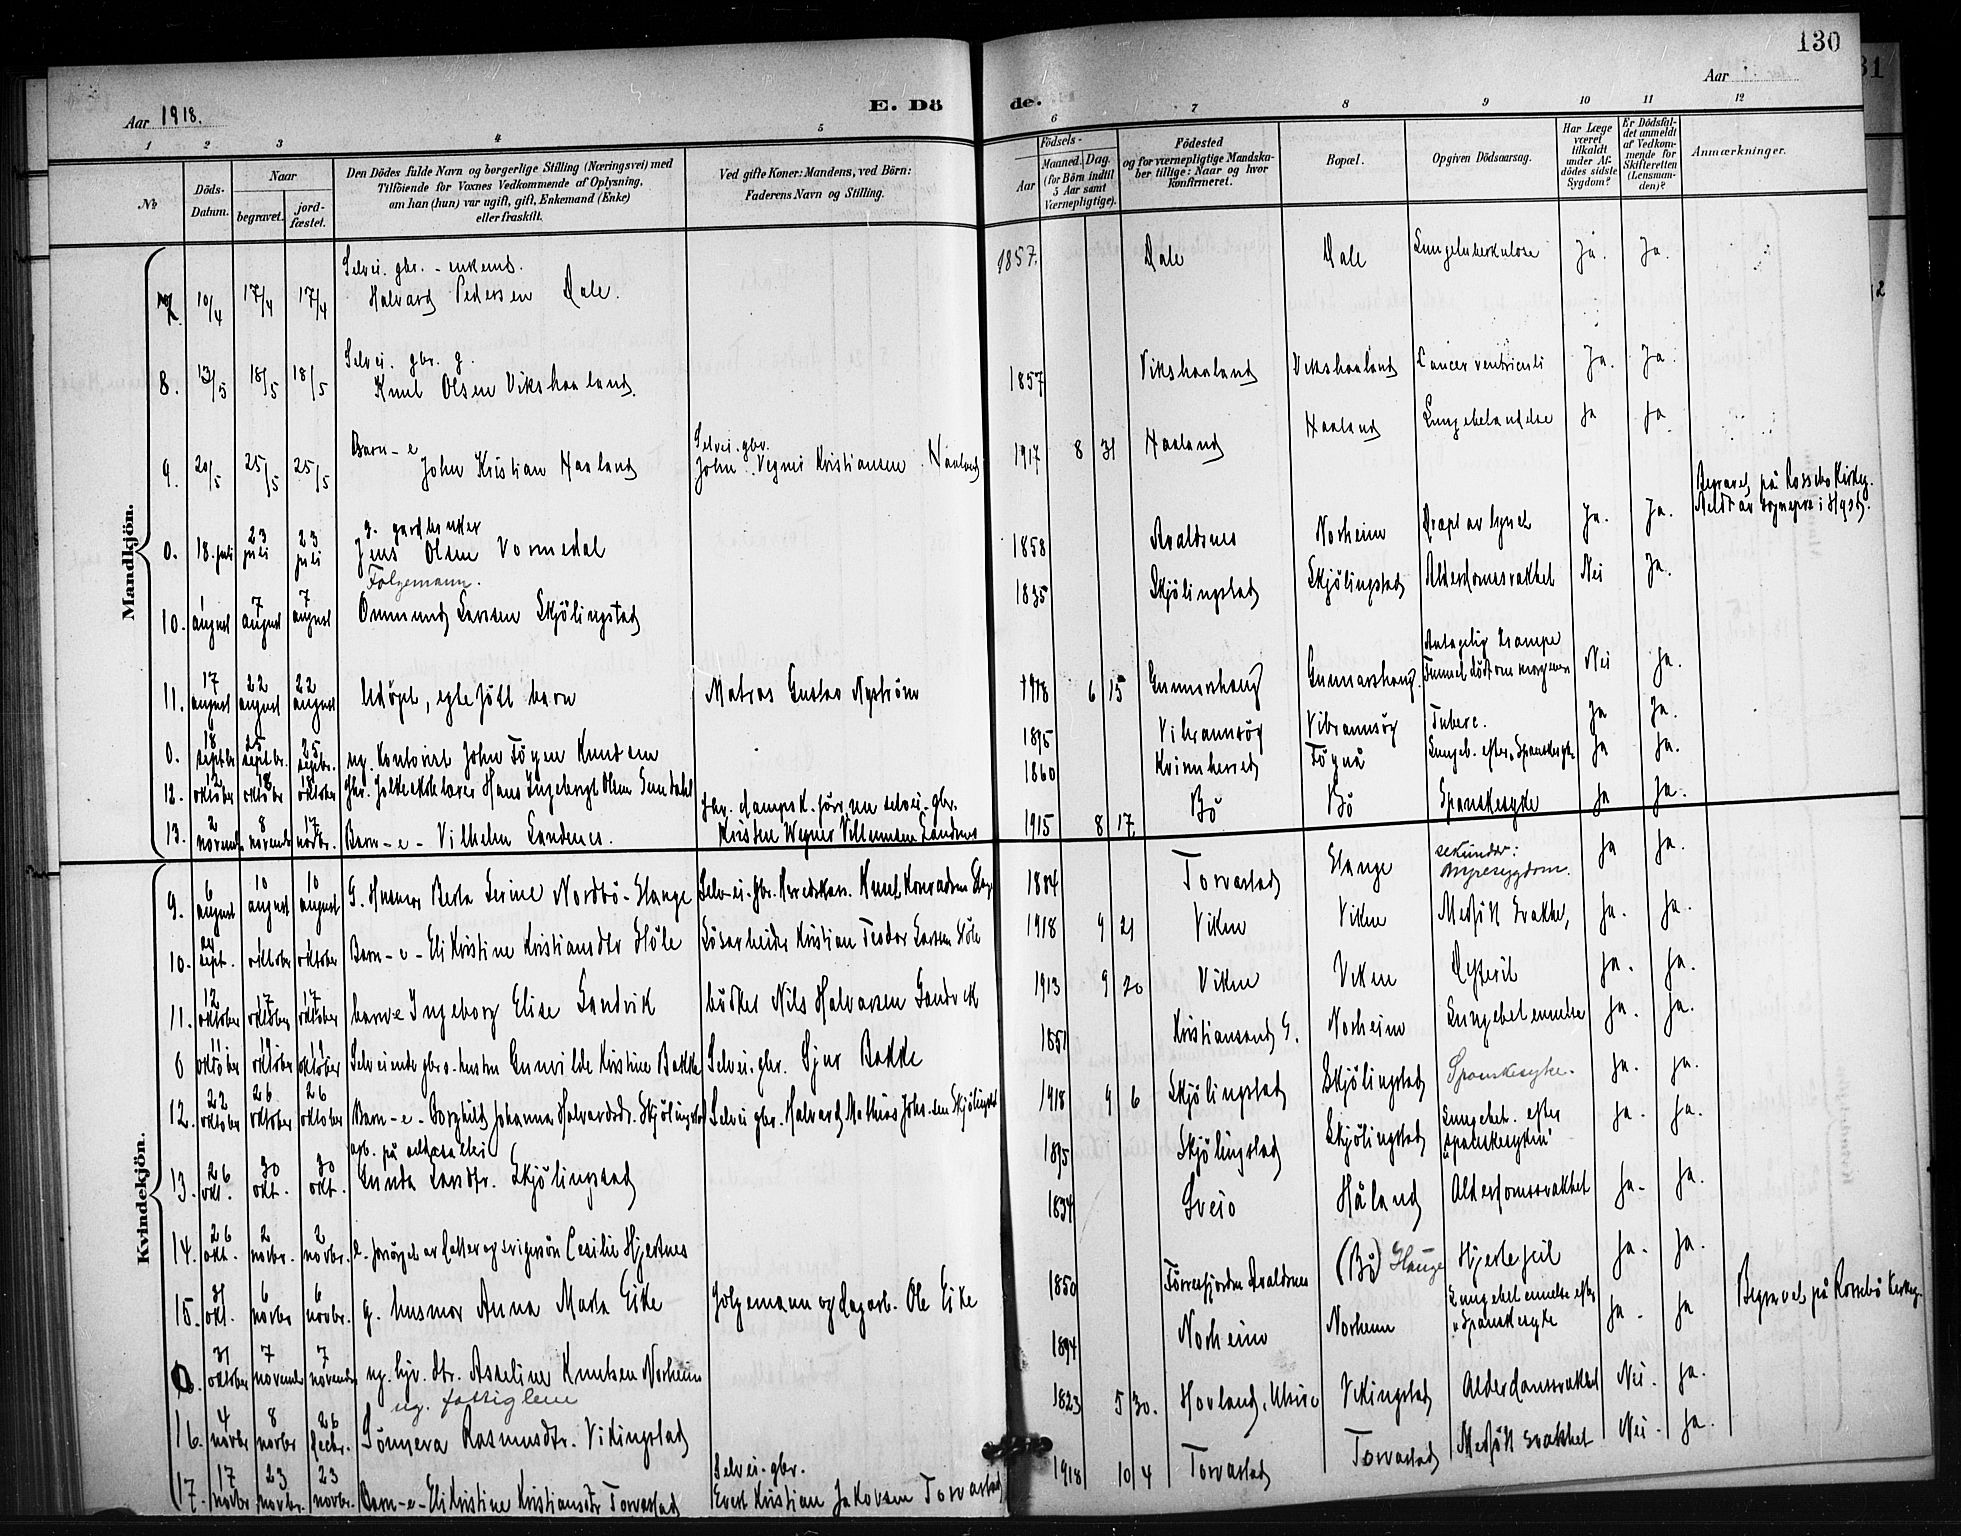 130
Aar 1918.
E. Dö
de.
Aar
1 2 3 4 5 6 7 8 9 10 11 12
No
Döds-Datum.
Naar
begravet.
jord-fæstet.
Den Dödes fulde Navn og borgerlige Stilling (Næringsvei) med
Tilföiende for Voxnes Vedkommende af Oplysning,
om han (hun) var ugift, gift, Enkemand (Enke)
eller fraskilt.
Ved gifte Koner: Mandens, ved Börn:
Faderens Navn og Stilling.
Födsels-
Aar
Maaned. Dag.
(for Börn indtil
5 Aar samt
Værnepligtige).
Födested
og for værnepligtige Mandska-
ber tillige: Naar og hvor
konfirmeret.
Bopæl.
Opgiven Dödsaarsag.
Har Læge
været
tilkaldt
under Af-
dödes sidste
Sygdom?
Er Dödsfal-
det anmeldt
af Vedkom-
mende for
Skifteretten
(Lensman-
den)?
Anmærkninger.
Mandkjön.
Selvei. gbr. - enkemd.
7. 10/4 17/4 17/4 Halvard Pedersen Dale. 1857. Dale Dale Lungetuberkulose Ja. Ja.
Selvei. gbr. g.
8. 13/5 18/5 18/5 Knut Olsen Vikshaaland. 1857 Vikshaaland Vikshaaland Cancer ventriculi Ja. Ja.
Barn - e Selvei. gbr.
9. 20/5 25/5 25/5 John Kristian Haaland John Vegner Kristiansen Haaland 1917 8 31 Haaland Haaland Lungebetændelse Ja Ja
g. gardbruker Begravet på Rossebø Kirkeg.
0. 18. juli 23 juli 23 juli Jens Olsen Vormedal 1858 Avaldsnes Norheim Dræpt av lynet Ja. Ja. Meldt av sognepr. i
Folgemann.
10. 1 august 7 august 7 august Ommund Larsen Skjölingstad 1835 Skjölingstad Skjölingstad Alderdomssvakhet Nei Ja.
Antagelig krampe
11. 17 august 22 august 22 august Udöpt, egtefödt barn Matros Gustav Nyström 1918 6 15 Gunnarshaug Gunnarshaug. Funnet död om morgenen Nei Ja.
0. 18 septbr 25 septbr. 25 septbr. ug. Kontorist John Fögen Knudsen 1895 Vibrannsöy Vibrannsöy Tuberc. Ja Ja.
12. 12 oktober 18 oktobr 18 oktober Gbr. folkeskolelærer Hans Ingebrigt Olsen 1860 Kvinnherred Föynå Lungeb. efter "Spanskesyke" Ja Ja.
13. 2 novemb 8 novembr 17 novbr. Barn - e - Vilhelm Sandenes. selvei. gbr.
Kristen Wegner Villumsen Sandnes 1915 8 17 Bö Bö Spanskesyke Ja Ja.
Kvindekjön.
9. 6 august 10 august 10 august G. Husmor Berta Serine Nordbö - Stange Selvei. gbr. Knut Konradsen Stange 1884 Torvastad Stange sekundær: Nyresygdom. Ja Ja.
10. sept. 1 oktober 1 oktober Barn - e - Eli Kristine Kristiansdtr Støle Lösarbeider Kristian Teodor Larsen Støle 1918 9 21 Viken Viken Medfödt svakhet, Ja. Ja.
11. 12 oktober 17 oktober 17 oktober barn - e Ingeborg Elise Sandvik bödker Nils Halvorsen Sandvik 1913 9 20 Viken Viken Difterit Ja. Ja.
0 11 oktober oktober oktober Selveiende gbr.s. hustru Gunvilde Kristine Bakke Selvei. gbr. Sjur Bakke 1851 Kristiansand S. Norheim Lungebetennelse Ja. Ja.
12. 22 oktober 26 oktober 26 oktober Barn - e - Borghild Johanna Halvardsdr. Skjölingstad Selvei gbr. Halvard Mathias Johs.sen Skjölingstad 1918 9 6 Skjölingstad Skjölingstad Spanskesyke. Ja. Ja.
arb. på
13. 26 okt. 30 okt. 30 okt. Gunda Larsdtr. Skjölingstad 1895 Skjölingstad Skjölingstad Lungebet. efter "spanskesyken" Ja. Ja.
14. 26 okt. 2 novbr. 2 novbr. e. forsörget av datter og svigersön Cesilie Hjertnes 1834 Sveio Håland Alderdomssvakhet Ja. Ja.
15. 31 okt. 6 novbr 6 novbr. g. husmor Anna Marta Eike Folgemann og dagarb. Ole Eike 1850 Förresfjorden Avaldsnes (Bö) Hauge Hjertefeil Ja. Ja.
0. 31 oktober 7 novembr 7 novembr ug. hjv. dtr. Asseline Knutsen Norheim 1894 Norheim Norheim Lungebetennelse efter "Spanskesyke Ja. Ja Begravet på Rossebö Kirkeg.
ug. fattiglem
16. 4 novbr 8 novbr 26 decbr. Sönneva Rasmusdtr. Vikingstad 1823 5 30. Hovland, Utsire Vikingstad Alderdomssvakhet Nei. Ja.
Selvei. gbr.
17. 17 novbr 23 novbr. 23 novbr. Barn - e - Eli Kristine Kristiansdtr Torvastad Evert Kristian Jakobsen Torvastad 1918 10 4 Torvastad Torvastad Medfödt svakhet Nei. Ja.